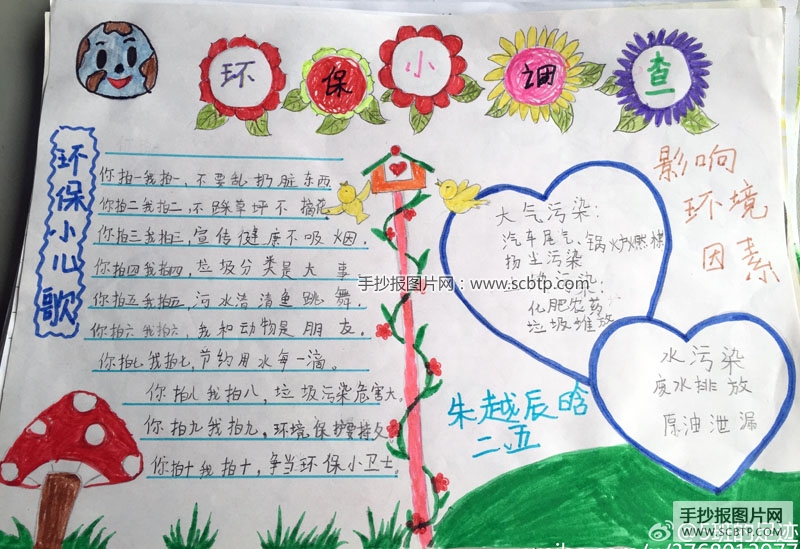 环保小调查
环保小儿歌
你拍一我拍一,不要乱扔脏东西
你拍二我拍二,不踩草坪不摘花
你拍三我拍三,宣传健康不吸烟。
你拍四我拍四,垃圾分类是大事
你拍五我拍五,污水清清鱼跳舞。
你拍六我拍六,我和动物是朋友。
你拍七我拍七,节约用水每一滴。
你拍八我拍八,垃圾污染危害大。
你拍九我拍九,环境保护要持久
你拍十我拍十,争当环保小卫士。
手抄报图片网:www.scbtp.com
大气污染:
汽车尾气、锅炉燃煤
扬尘污染
污染:
化肥农药
垃圾堆放
影响
环境
因素
水污染
废水排放
原油泄漏
朱越辰晗
二、五
手抄报图片网
SCBTP.COM